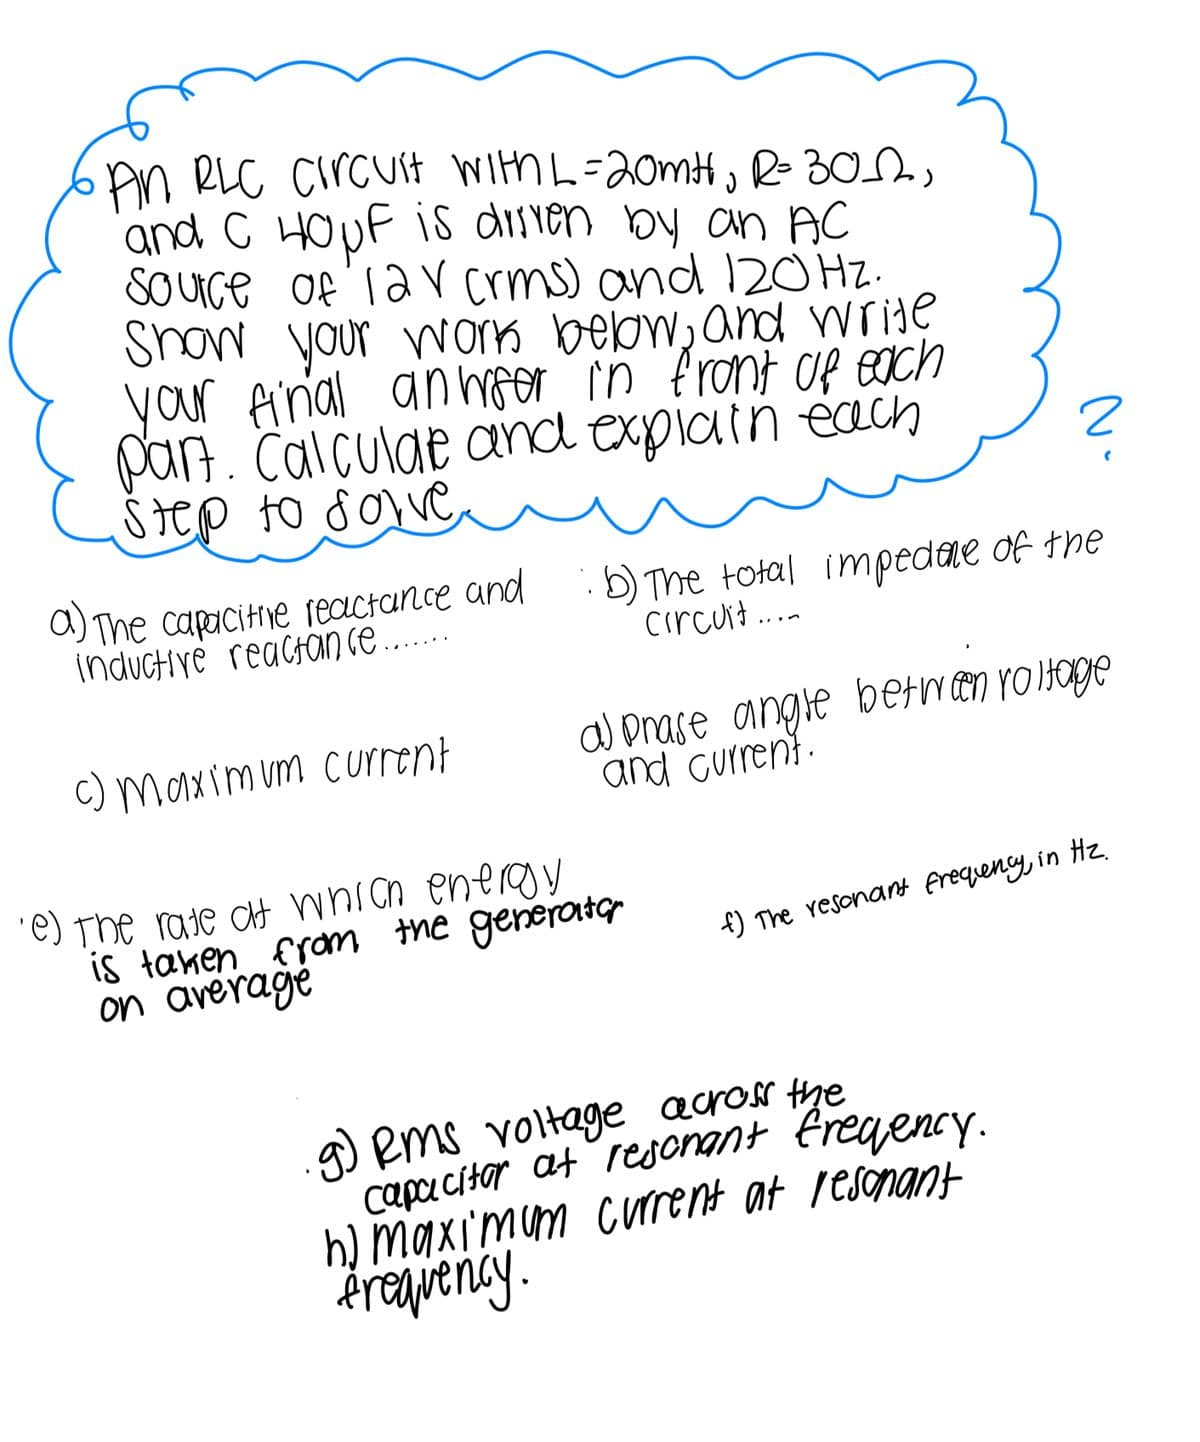 An RLC circuit with L=20mH, R=30Ω,
and C 40μF is driven by an AC
source of 12V (rms) and 120Hz.
Show your work below, and write
your final answer in front of each
part. Calculate and explain each
step to solve.
?
a) The capacitive reactance and
inductive reactance.......
b) The total impedance of the
circuit....
c) maximum current
d) phase angle between voltage
and current.
e) The rate at which energy
is taken from the generator
on average
f) The resonant frequency, in Hz.
g) Rms voltage across the
capacitor at resonant freqency.
h) maximum current at resonant
frequency.